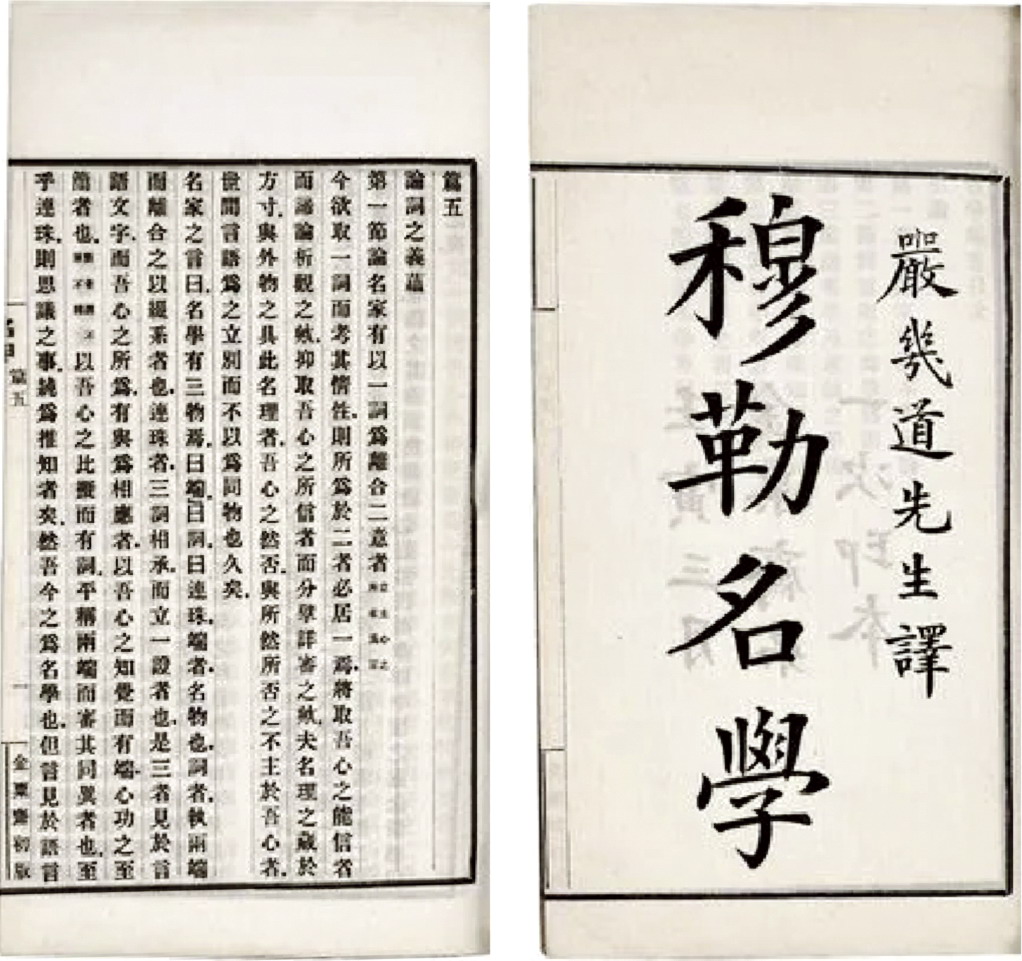 嚴幾道先生譯
穆勒名學
篇五
論詞之義蘊
第一節論名家有以一詞爲離合二意者
今欲取一詞而考其情性.則所爲於二者必居一焉.將取吾心之能信者
而諦論析觀之歟.抑取吾心之所信者而分擘詳審之歟.夫名理之藏於
方寸.與外物之具此名理者.吾心之然否.與所然所否之不主於吾心者.
世間言語爲之立別而不以爲同物也久矣.
名家之言曰.名學有三物焉.曰端.曰詞.曰連珠.端者.名物也.詞者.執兩端
而離合之以綴系者也.連珠者.三詞相承.而立一證者也.是三者見於言
語文字.而吾心之所爲.有與爲相應者.以吾心之知覺而有端.心功之至
簡者也.以吾心之比擬而有詞.平稱兩端而審其同異者也.至
乎連珠.則思議之事.純爲推知者矣.然吾今之爲名學也.但言見於語言
篇五
一
金粟齋初版